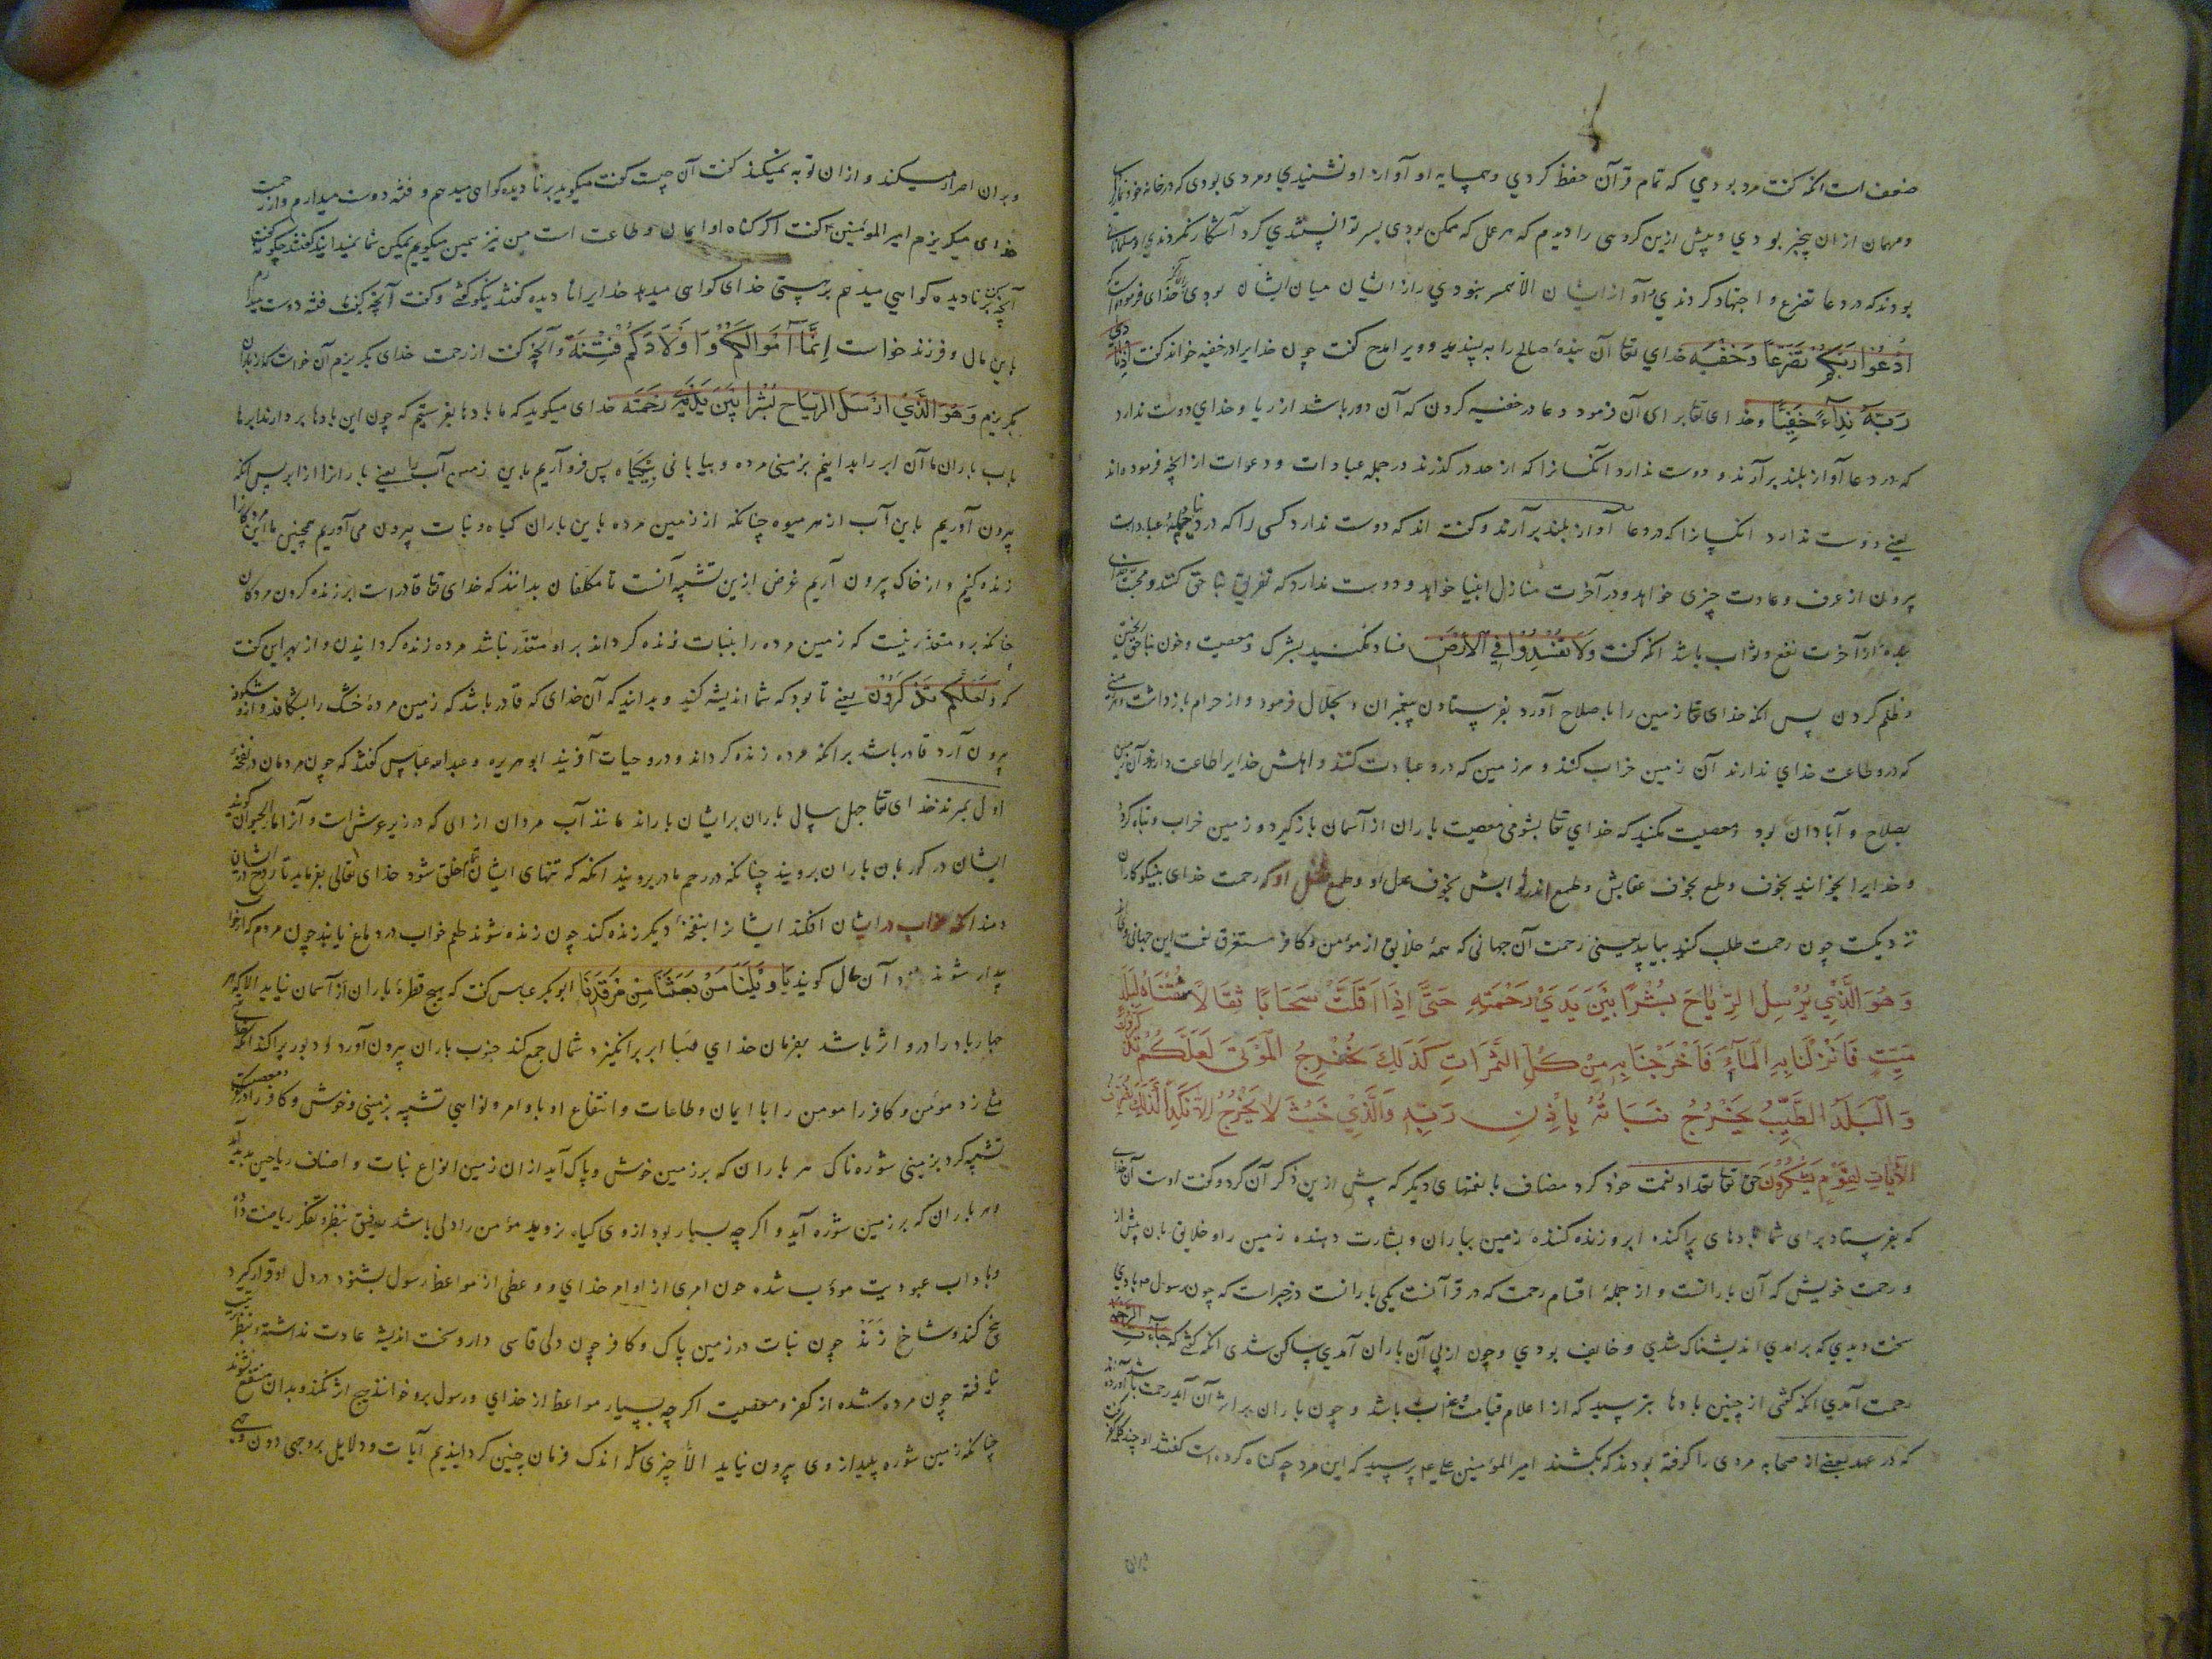 ضعف است انکه کفت مرد بودی که تمام قرآن حفظ کردی و همسایه او آواز او نشنیدی و مردی بودی که در خانه خود نماز
و مهمان از ان بیخبر بودی و پیش ازین کروهی را دیدم که هر عمل که ممکن بودی بسر توانستندی کرد آشکار نکردندی و مسلمانان
بودند که در دعا تضرع و اجتهاد کردندی و آواز ایشان الا همس نبودی راز ایشان میان ایشان بودی خدای فرموده است
ادعوا ربکم تضرعا وخفیه خدای تعا آن بنده صالح را بپسندید و ویرا مدح کفت چون خدایرا در خفیه خواند کفت اذ نادی
ربه نداء خفیا و خدای تعا برای آن فرمود دعا در خفیه کردن که آن دور باشد از ریا و خدای دوست ندارد
که در دعا آواز بلند برآرند و دوست ندارد انکسانرا که از حد در کذرند در جمله عبادات و دعوات از انچه فرموده اند
یعنی دوست ندارد انکسانرا که در دعا آواز بلند برآرند و کفته اند که دوست ندارد کسی را که در دنیا جمله عبادات
بیرون از عرف و عادت چیزی خواهد و در آخرت منازل انبیا خواهد و دوست ندارد که نفرین بناحق کنند و محبت خدای
بنده را در آخرت نفع و ثواب باشد انکه کفت ولا تفسدوا فی الارض فساد مکنید بشرک و معصیت و خون بناحق ریختن
و ظلم کردن پس انکه خدای تعا زمین را باصلاح آورد بفرستادن پیغمبران و بحلال فرمود و از حرام بازداشت
که درو طاعت خدای ندارند آن زمین خراب کنند و هر زمین که درو عبادت کنند و اهلش خدایرا طاعت دارند آن زمین
بصلاح و آبادان بود معصیت مکنید که خدای تعا بشومی معصیت باران از آسمان باز کیرد و زمین خراب و تباه کردد
و خدایرا بخوانید بخوف و طمع بخوف عقابش و طمع اندر ثوابش بخوف عمل او و طمع فضل او که رحمت خدای بنیکوکاران
نزدیکست چون رحمت طلب کنید بیابید یعنی رحمت آن جهانی که همه خلایق از مؤمن و کافر مستغرق نعمت این جهانی اند
وَهُوَ الَّذِي يُرْسِلُ الرِّيَاحَ بُشْرًا بَيْنَ يَدَيْ رَحْمَتِهِ حَتَّى إِذَا أَقَلَّتْ سَحَابًا ثِقَالًا سُقْنَاهُ لِبَلَدٍ
مَيِّتٍ فَأَنْزَلْنَا بِهِ الْمَاءَ فَأَخْرَجْنَا بِهِ مِنْ كُلِّ الثَّمَرَاتِ كَذَلِكَ نُخْرِجُ الْمَوْتَى لَعَلَّكُمْ تَذَكَّرُونَ
وَالْبَلَدُ الطَّيِّبُ يَخْرُجُ نَبَاتُهُ بِإِذْنِ رَبِّهِ وَالَّذِي خَبُثَ لَا يَخْرُجُ إِلَّا نَكِدًا كَذَلِكَ نُصَرِّفُ
الْآيَاتِ لِقَوْمٍ يَشْكُرُونَ حق تعا تعداد نعمت خود کرد مضاف با نعمتهای دیکر که پیش ازین ذکر آن کرد و کفت اوست آن خدای
که بفرستاد برای شما بادهای پراکنده ابر و زنده کننده زمین بباران و بشارت دهنده زمین را و خلایق بان پیش از
و رحمت خویش که آن بارانست و از جمله اقسام رحمت که در قرآنست یکی بارانست در خبر است که چون رسول م بادی
سخت دیدی که برآمدی اندیشناک شدی و خایف بودی و چون از پی آن باران آمدی ساکن شدی انکه کفتی که جاءت الرحمة
رحمت آمدی انکه کفتی از چنین بادها بترسید که از اعلام قیامت و عذاب باشد و چون باران بر اثر آن آید رحمت باشد آورده اند
که در عهد بعضی از صحابه مردی را کرفته بودند که بکشند امیر المؤمنین علیه پرسید که این مرد چه کناه کرده است کفتند او چند کلمه کفر
بران
و بدان اصرار میکند و از ان توبه نمیکند کفت آن چیست کفت میکوید بر نادیده کواهی میدهم و فتنه دوست میدارم و از رحمت
خدای میکریزم امیر المؤمنین ع کفت اکر کناه او ایمان و طاعت است من نیز همین میکویم لیکن شما نمیدانید کفتند چکونه کفت
آنچه کفت بر نادیده کواهی میدهم بر هستی خدای کواهی میدهد خدایرا نادیده کفتند نیکو کفتی و کفت آنچه کفت فتنه دوست میدارم
باین مال و فرزند خواست إنما أموالکم وأولادکم فتنة و آنچه کفت از رحمت خدای بکریزم آن خواست که از باران
بکریزم وهو الذی ارسل الریاح بشرا بین یدی رحمته خدای میکوید که ما بادها بفرستیم که چون این بادها بردارند ابرها
باب باران ما آن ابر را برانیم بزمینی مرده و بیابانی بی کیاه پس فرو آریم باین زمین آب را یعنی بارانرا از ابر پس انکه
بیرون آوریم باین آب از هر میوه چنانکه از زمین مرده باین باران کیاه و نبات بیرون می آوریم همچنین ما این مردکانرا
زنده کنیم و از خاک بیرون آریم غرض ازین تشبیه آنست تا مکلفان بدانند که خدای تعا قادر است بر زنده کردن مردکان
چنانکه برو متعذر نیست که زمین مرده را بنبات زنده کرداند بر او متعذر نباشد مرده زنده کردانیدن و از بهر این کفت
که لعلکم تذکرون یعنی تا بود که شما اندیشه کنید و بدانید که آن خدای که قادر باشد که زمین مرده خشک را بشکافد و ازو شکوفه
بیرون آرد قادر باشد برانکه مرده زنده کرداند و درو حیات آفریند ابو هریره و عبد الله عباس کفتند که چون مردمان در نفخه
اول بمیرند خدای تعا چهل سال باران بر ایشان باراند مانند آب مردان از ابی که در زیر عرش است و آنرا ماء الحیوان کویند
ایشان در کور بان باران برویند چنانکه در رحم مادر برویند انکه که تنهای ایشان تمام خلق شود خدای تعالی بفرماید تا روح در ایشان
دمند انکه خواب در ایشان افکند ایشانرا بنفخه دیکر زنده کند چون زنده شوند طعم خواب در دماغ یابند چون مردم که از خواب
بیدار شوند در آن حال کویند یا ویلنا من بعثنا من مرقدنا ابو بکر عباس کفت که هیچ قطره باران از آسمان نیاید الا که هر
چهار باد را درو اثر باشد بفرمان خدای صبا ابر برانکیزد شمال جمع کند جنوب باران بیرون آورد و دبور پراکند انکه خدای
مثل زد مؤمن و کافر را مومن را با ایمان و طاعات و انتفاع او باوامر و نواهی تشبیه بزمینی خوش و کافر را در کفر و معصیت
تشبیه کرد بزمینی شوره ناک هر باران که بر زمین خوش و پاک آید از ان زمین انواع نبات و اصناف ریاحین پدید آید
و هر باران که بر زمین شوره آید و اکر چه بسیار بود از وی کیاه نروید مؤمن را دلی باشد بتوفیق بنظر و تفکر ریاضت داده
و باداب عبودیت مؤدب شده چون امری از اوامر خدای و وعظی از مواعظ رسول بشنود در دل او قرار کیرد
بیخ کند و شاخ زند چون نبات در زمین پاک و کافر چون دلی قاسی دارد سخت اندیشه عادت نداشته و بنظر تربیت
نایافته چون مرده شده از کفر و معصیت اکر چه بسیار مواعظ از خدای و رسول برو خوانند هیچ اثر نکند و بدان منتفع نشوند
چنانکه زمین شوره پلید از وی بیرون نیاید الا چیزکی اندک فرمان چنین کردانیدیم آیات و دلایل بر وجهی دون وجهی